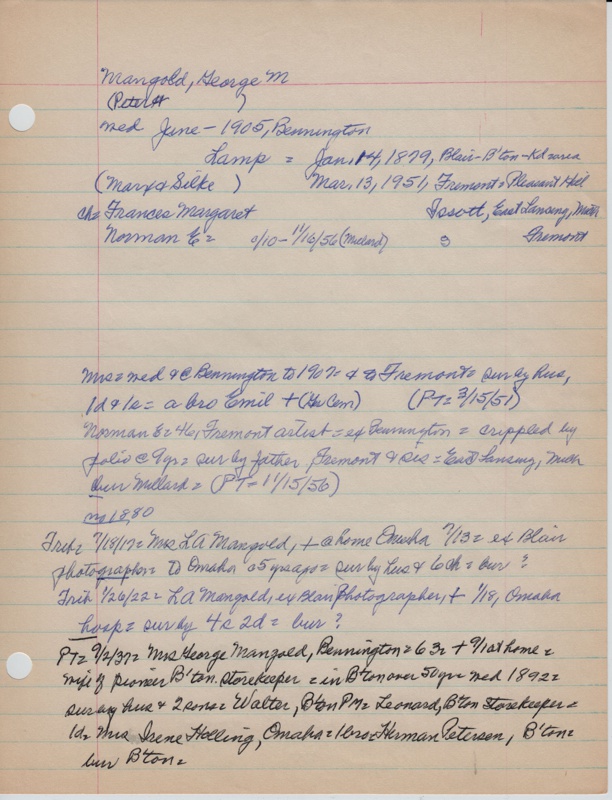 Mangold, George M
(Peter H )
wed June - 1905, Bennington
Lamp = Jan. 14, 1879, Blair-B'ton-Kd area
(Marx & Silke ) Mar. 13, 1951, Fremont = Pleasant Hill
ch = Frances Margaret Issott, East Lansing, Mich
Norman E = 0/10 - 11/16/56 (Millard) 3 Fremont
Mrs = wed & C Bennington to 1907 = & to Fremont = sur by hus,
1d & 1s = a bro Emil + (Cem) (PT = 3/15/51)
Norman E = 46, Fremont artist = ex Bennington = crippled by
polio @ 9 yr = sur by father, Fremont & sis = East Lansing, Mich
bur Millard = (PT = 11/15/56)
1880
Trib = 7/18/17 = Mrs L A Mangold, + @ home Omaha 7/13 = ex Blair
photographer = to Omaha 5 yrs ago = sur by hus & 6 ch = bur ?
Trib 1/26/22 = L A Mangold, ex Blair Photographer, + 1/18, Omaha
hosp = sur by 4s 2d = bur ?
PT = 9/2/37 = Mrs George Mangold, Bennington = 63 = + 9/1 at home =
wife of pioneer B'ton storekeeper = in B'ton over 50 yr = wed 1892 =
sur by hus & 2 sons = Walter, B'ton PM = Leonard, B'ton Storekeeper =
1d = Mrs Irene Holling, Omaha = 1 bro = Herman Petersen, B'ton =
bur B'ton =